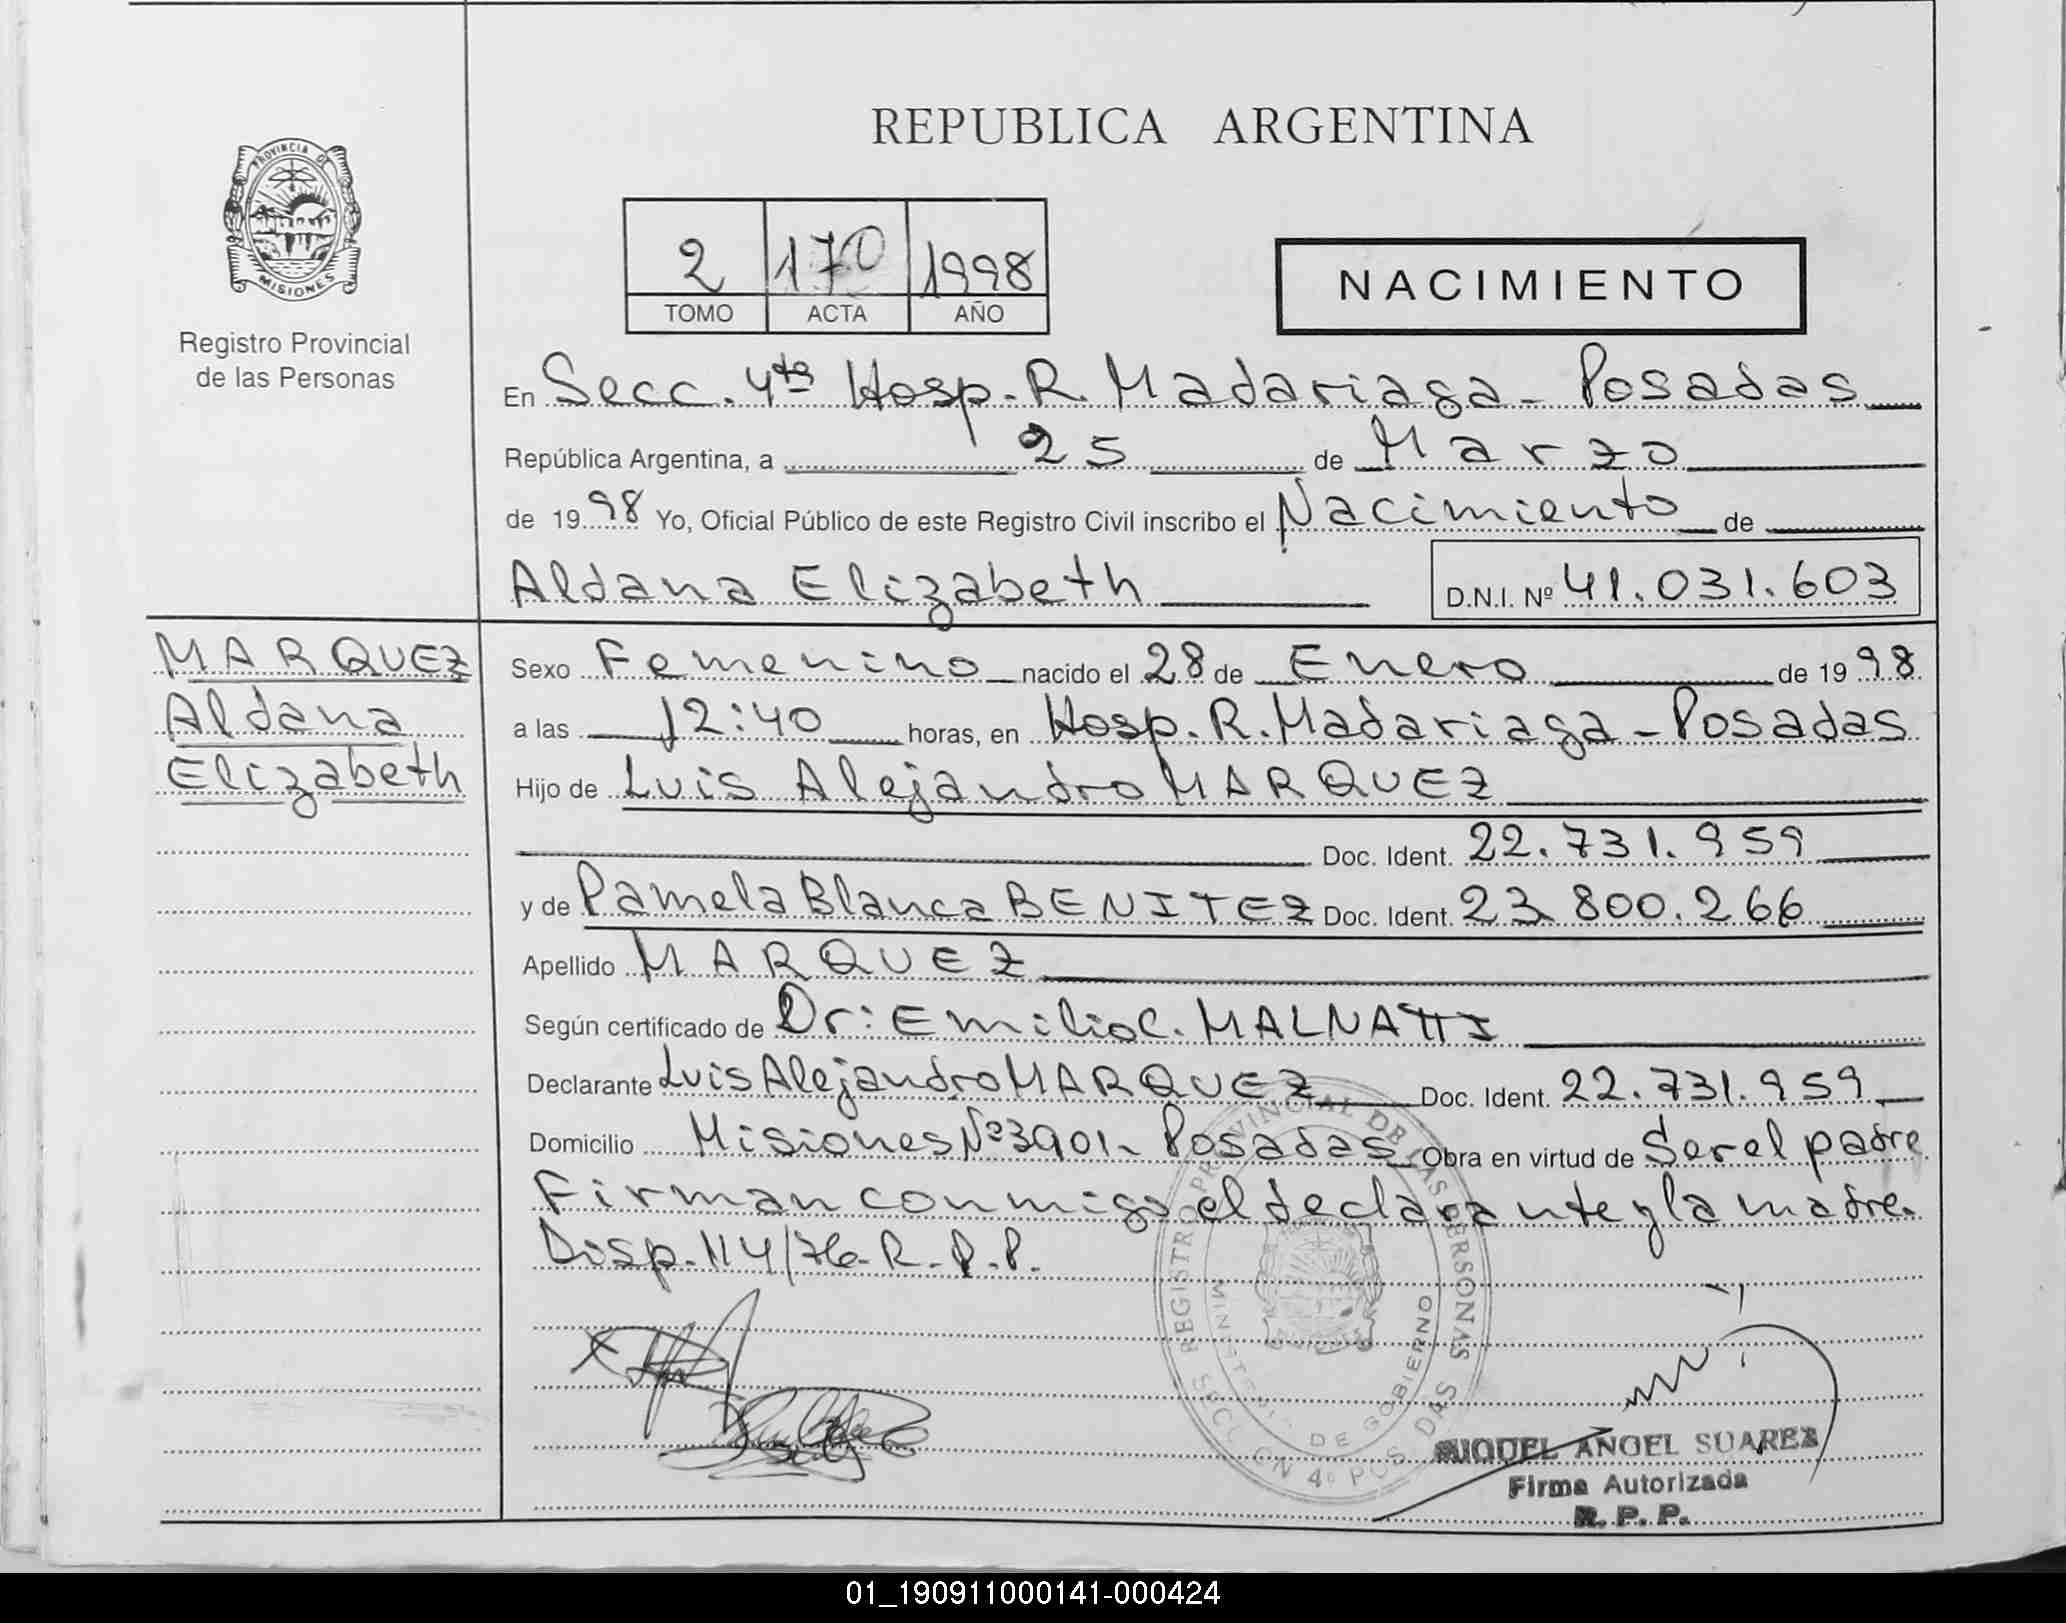 REPUBLICA ARGENTINA
PROVINCIA DE
MISIONES
Registro Provincial
de las Personas
2 170 1998
TOMO ACTA AÑO
NACIMIENTO
En Secc. 4ta Hosp. R. Madariaga - Posadas
República Argentina, a 25 de Marzo
de 1998 Yo, Oficial Público de este Registro Civil inscribo el Nacimiento de
Aldana Elizabeth D.N.I. Nº 41.031.603
MARQUEZ
Aldana
Elizabeth
Sexo Femenino nacido el 28 de Enero de 1998
a las 12:40 horas, en Hosp. R. Madariaga - Posadas
Hijo de Luis Alejandro MARQUEZ
Doc. Ident. 22.731.959
y de Pamela Blanca BENITEZ Doc. Ident. 23.800.266
Apellido MARQUEZ
Según certificado de Dr: Emilio C. MALNATTI
Declarante Luis Alejandro MARQUEZ Doc. Ident. 22.731.959
Domicilio Misiones Nº 3901 - Posadas Obra en virtud de Ser el padre
Firman conmigo el declarante y la madre.
Disp. 114/76 - R.P.P.
REGISTRO PROVINCIAL DE LAS PERSONAS
MINISTERIO DE GOBIERNO
SECCION 4º POSADAS
MIGUEL ANGEL SUAREZ
Firma Autorizada
R. P. P.
01_190911000141-000424